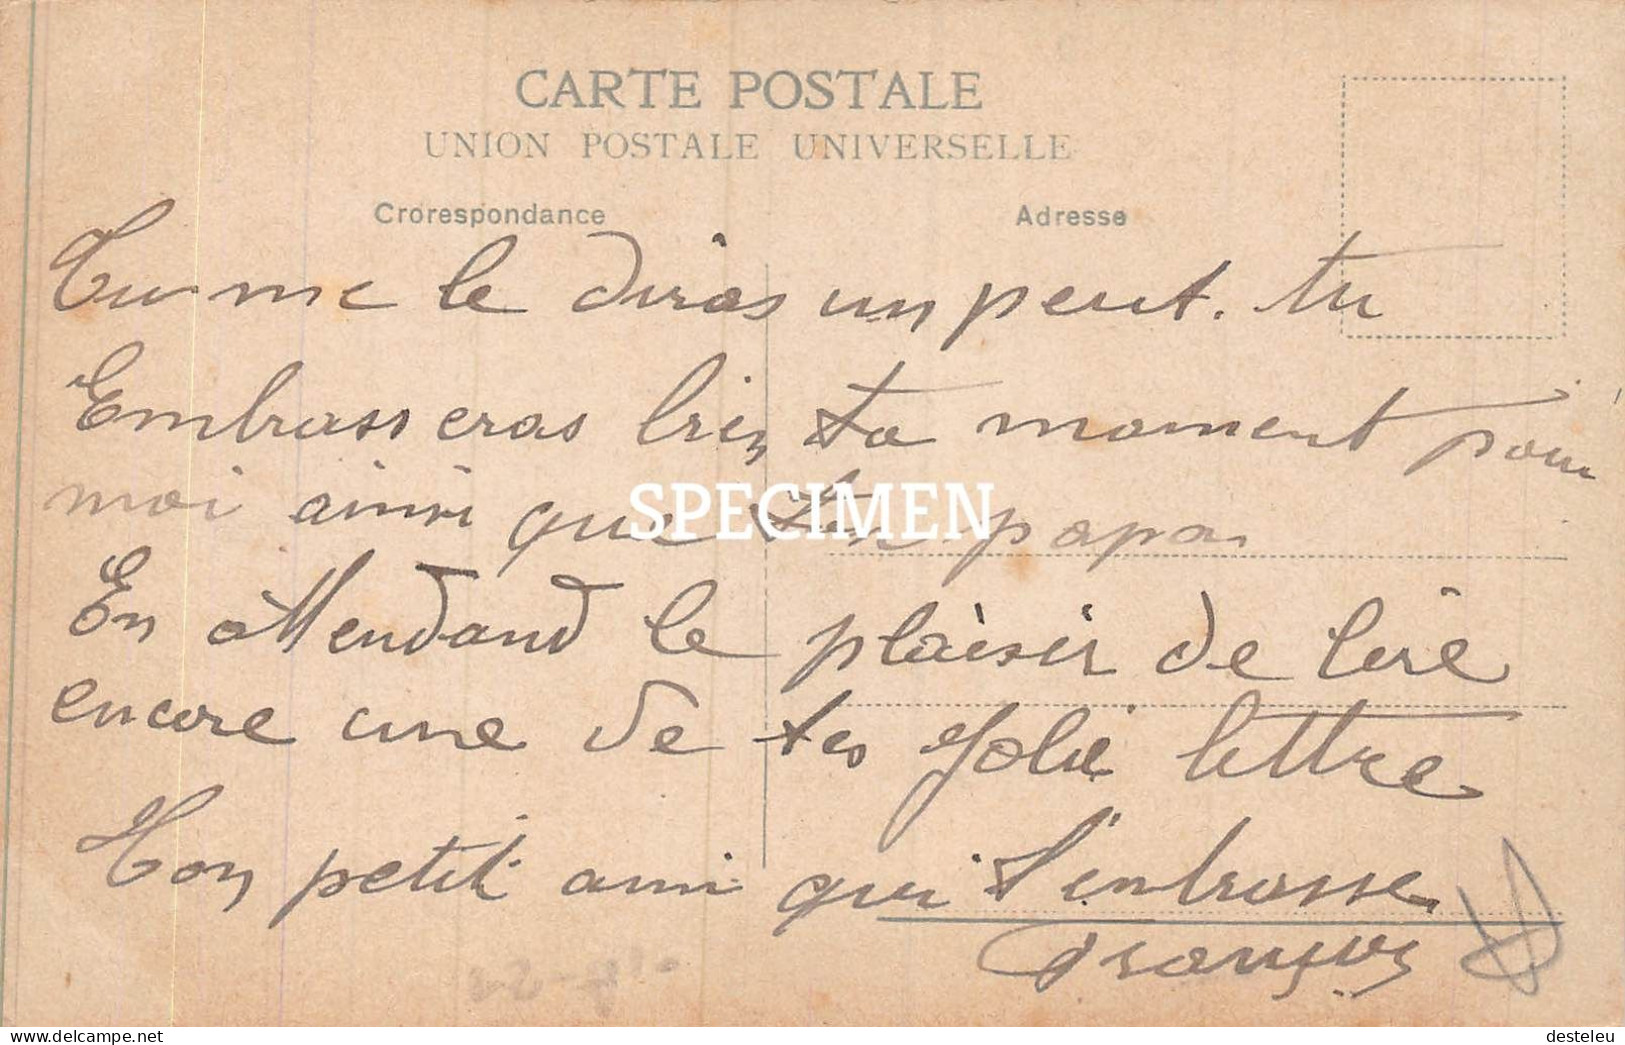 CARTE POSTALE
UNION POSTALE UNIVERSELLE
Crorespondance
Adresse
Tu me le diras un peut. tu
Embrasseras bien ta moment pour
moi ainsi que ton papa
En attendand le plaisir de lire
encore une de tes Jolie lettre
Ton petit ami qui t'embrasse
François
SPECIMEN
desteleu